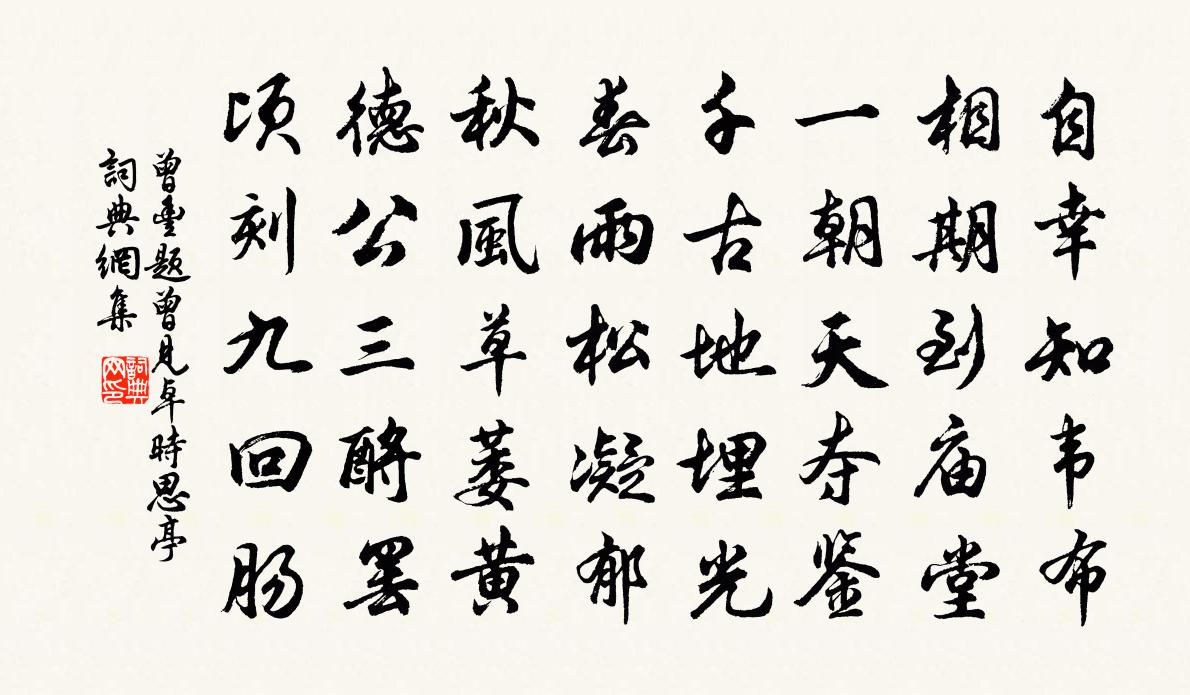 自幸知韦布
相期到庙堂
一朝天夺鉴
千古地埋光
春雨松凝郁
秋風草萎黄
德公三酹罢
顷刻九回肠
曾豐题曾見卓時思亭
詞典網集
詞典网印